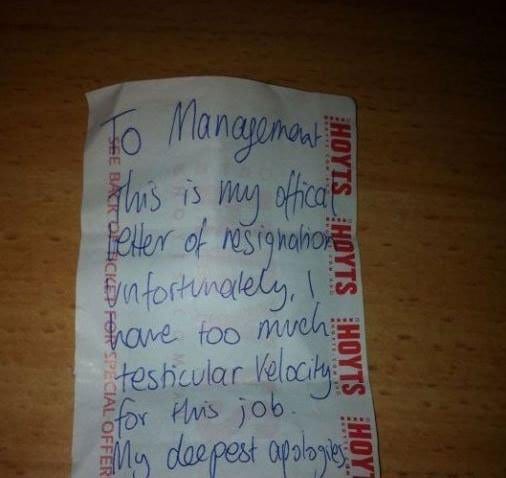 To Management
This is my offical
letter of resignation
unfortunately, I
have too much
testicular Velocity
for this job.
My deepest apologies
SEE BACK OF TICKET FOR SPECIAL OFFER
HOYTS
HOYTS
HOYTS
HOYT